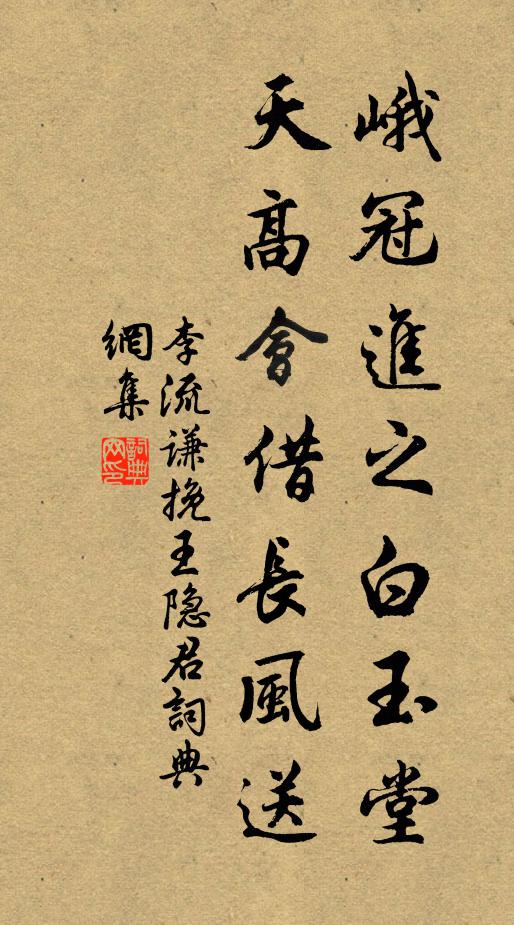 峨冠進之白玉堂
天高會借長風送
李流谦挽王隐君詞典
網集
詞典网印